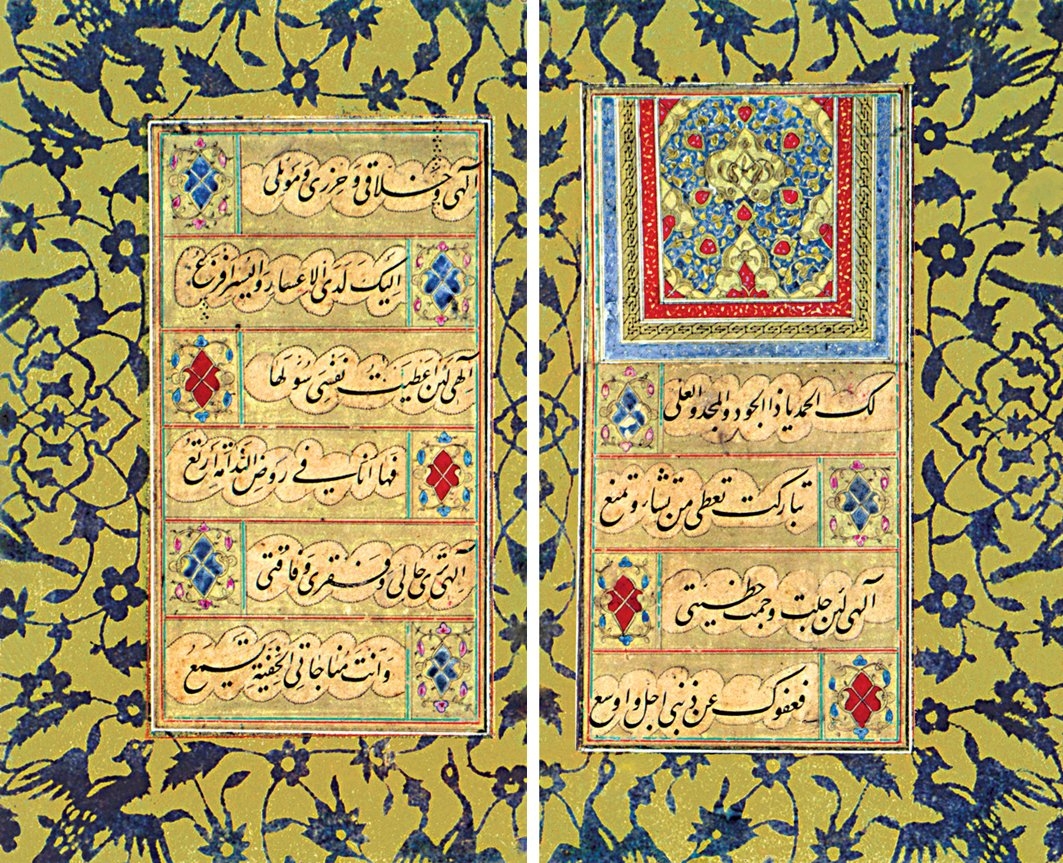 لك الحمد يا ذا الجود والمجد والعلى
تباركت تعطي من تشاء وتمنع
آلهي لئن جلت وجمت خطيئتي
فعفوك عن ذنبي اجل واوسع
آلهي وخلاقي وحرزي وموئلي
اليك لدى الاعسار واليسر افزع
آلهي لئن اعطيت نفسي سولها
فها انا في روض الندامة ارتع
آلهي ترى حالي وفقري وفاقتي
وانت مناجاتي الخفية تسمع